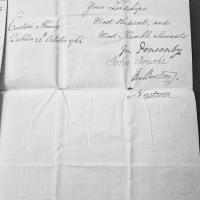 Your Lordships,
Custom House Most Obedient, and
Dublin 22d. October 1761 Most Humble Servants
Jn Ponsonby
John Bourke
Newtown